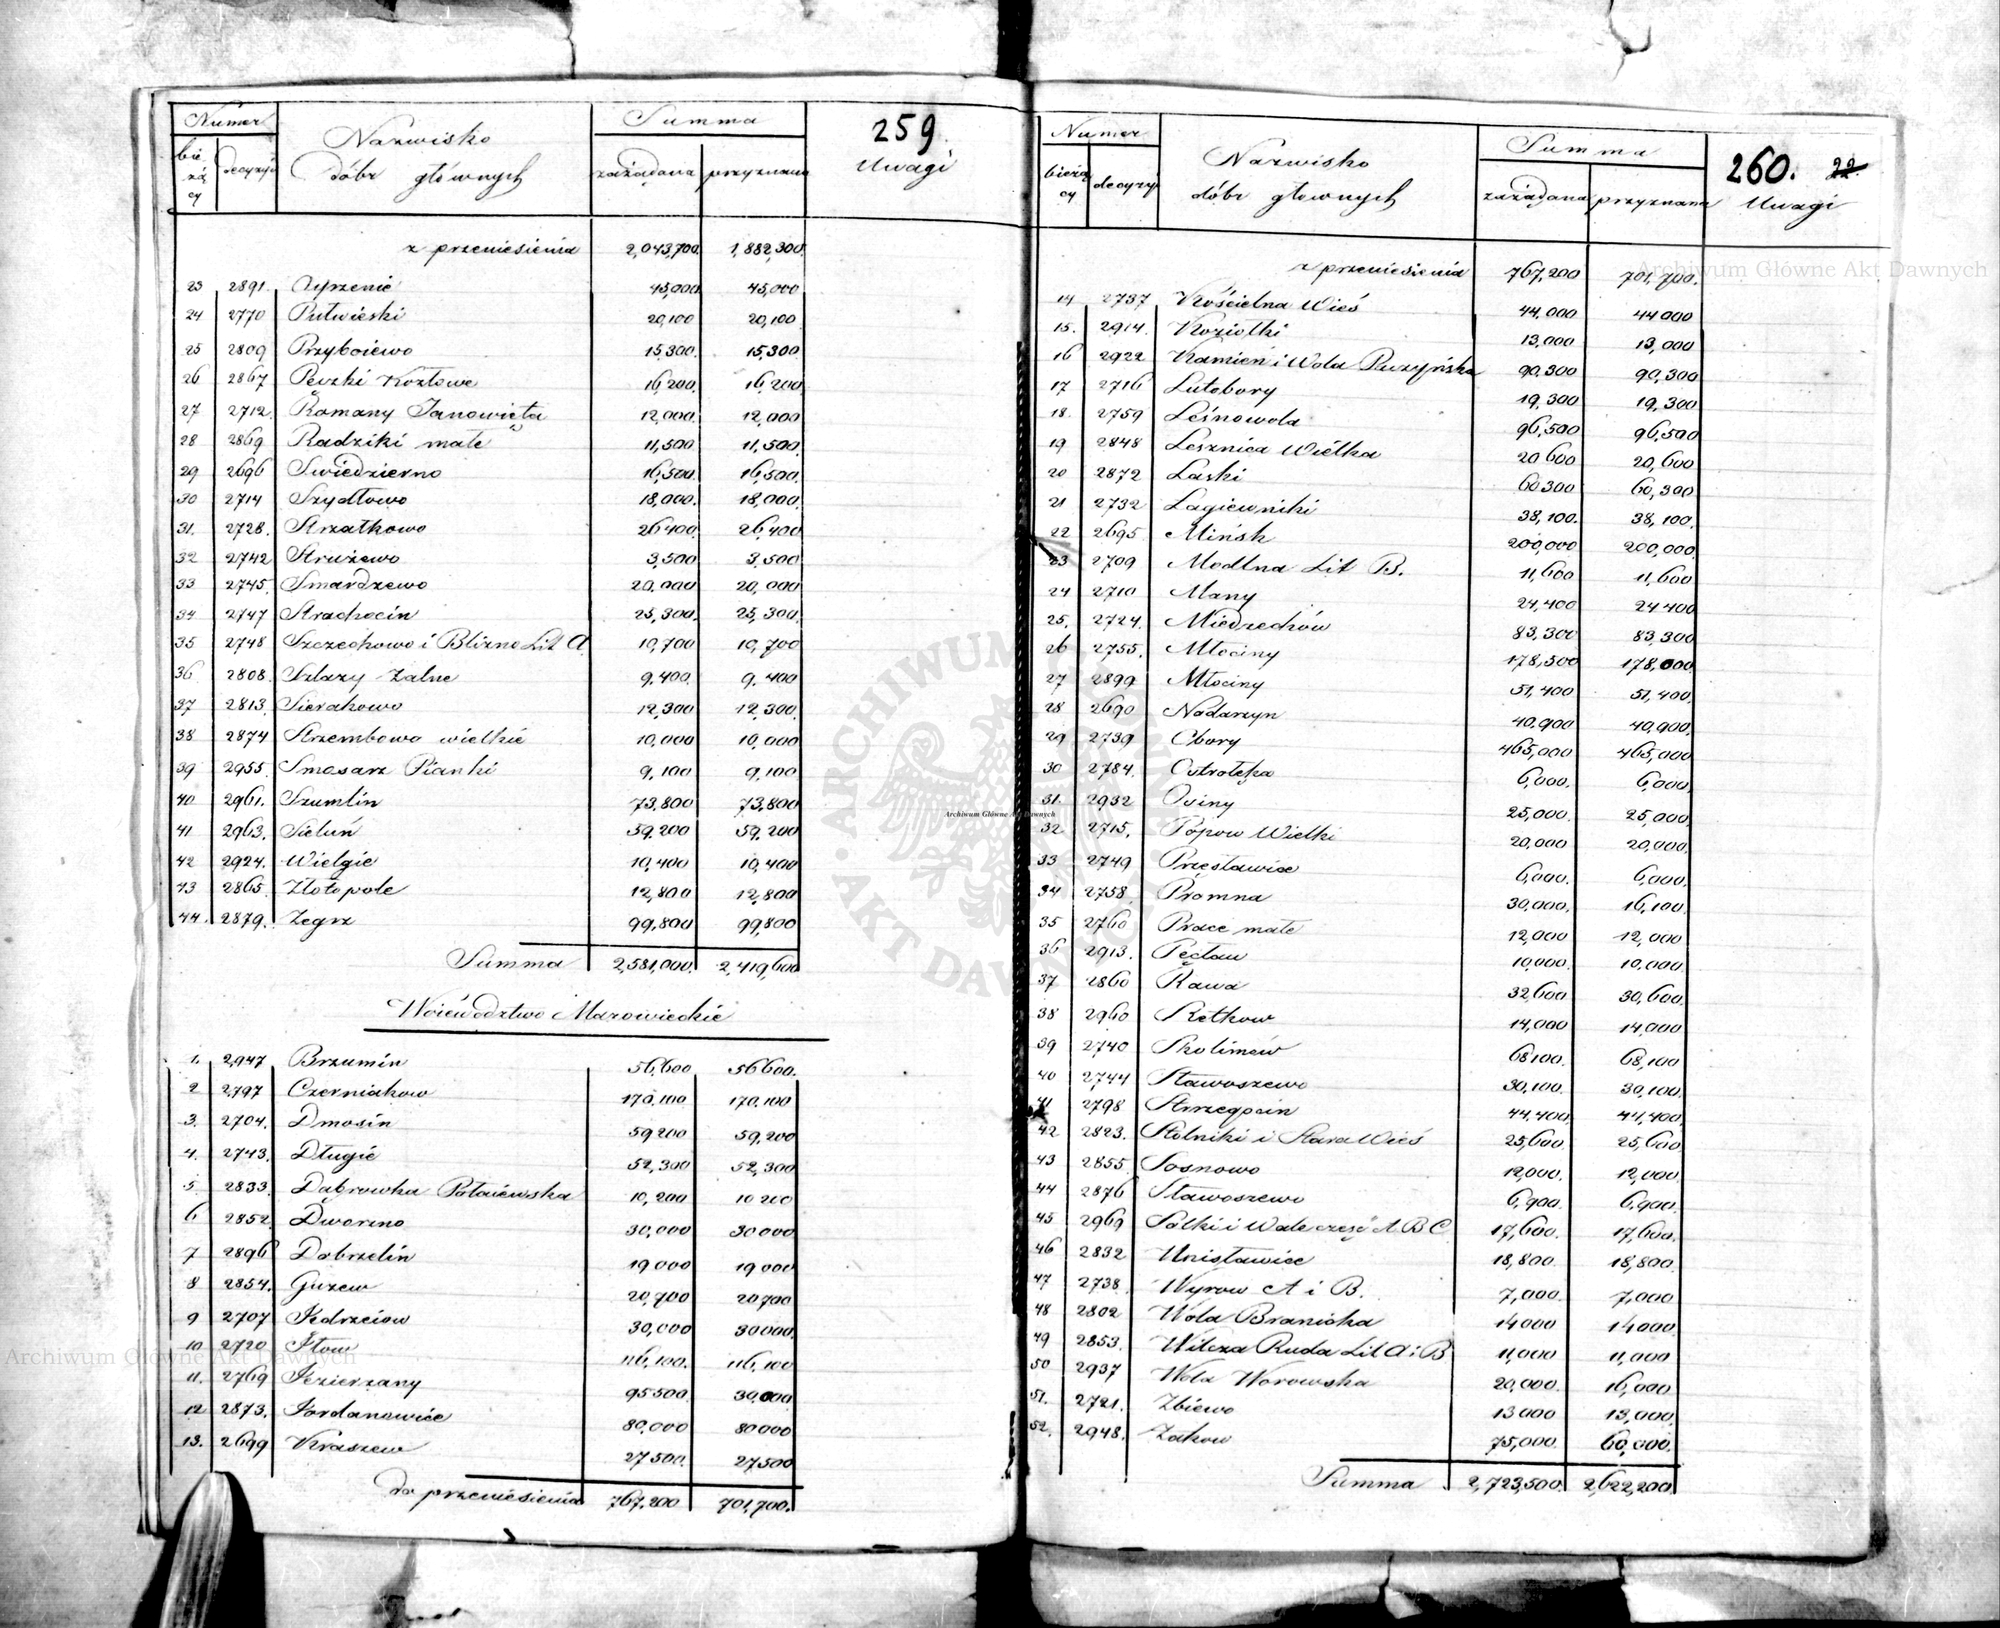 Numer
Summa
259.
Nazwisko
dóbr głównych
bieżący
decyzyi
zażądana
przyznana
Uwagi
z przeniesienia 2,043,700. 1,882,300.
23 2891. 45,000 45,000
24 2770 20,100 20,100
25 2809 Przyboiewo 15,300. 15,300
26 2867 Pęczki Kozłowe 16,200. 16,200
27 2712. Romany Janowięta 12,000. 12,000
28 2869 Radziki małe 11,500 11,500.
29 2696 Swiedzierno 16,500. 16,500.
30 2714 Szydłowo 18,000. 18,000.
31. 2728. Strzałkowo 26400. 26,400
32 2742 Strużewo 3,500 3,500
33 2745. Smardzewo 20,000 20,000
34 2747 Strachocin 25,300. 25,300.
35 2748 Szczechowo i Blizno Lit A. 10,700 10,700
36 2808. Szlazy-Zalne 9,400. 9,400
37 2813. Sierakowo 12,300 12,300.
38 2874 Strzembowo wielkie 10,000 10,000
39 2955. Smosarz Pianki 9,100 9,100
40 2961. Szumlin 73,800 73,800
41 2963. Sieluń 59,200 59,200
42 2924. Wielgie 10,400 10,400
43 2865. Złotopole 12,800 12,800
44. 2879. Zegrz 99,800 99,800
Summa 2,581,000. 2,419,600
Woiewództwo Mazowieckie
1. 2,947 Brzumin 56,600 56600.
2 2,797 Czerniakow 170,100 170,100
3. 2704. Dmosin 59200 59,200
4. 2743. Długie 52,300 52,300
5. 2833. Dąbrowka Połaiewska 10,200 10200
6 2852. Dworzno 30,000 30000
7 2896 Dobrzelin 19000 19000
8 2854. Guzew 20,700 20700
9 2707 Jędrzeiow 30,000 30000.
10 2720 Iłow 116,100. 116,100
11. 2769 Jezierzany 95500. 30,000
12 2873. Jordanowice 80,000 80000
13. 2699 Kraszew 27500. 27500
do przeniesienia 767,200 701,700.
Numer
Summa
260. 22
Nazwisko
dóbr głownych
bieżący
decyzyi
zażądana
przyznana
Uwagi
z przeniesienia 767,200 701,700.
14 2737 Kościelna Wieś 44,000 44000
15. 2914. Koziołki 13,000 13,000
16 2922 Kamień i Wola Paczyńska 90,300 90,300
17 2716 Lutobory 19,300 19,300
18. 2759 Leśnowola 96,500 96,500
19 2848 Lesznica Wielka 20600 20,600
20 2872 Laski 60300 60,300
21 2732 Łagiewniki 38,100. 38,100.
22 2695. Mińsk 200,000 200,000
23 2709 Modlna Lit B. 11,600 11,600
24 2710 Many 24,400 24400
25. 2724. Miedzechów 83,300 83,300
26 2755. Młociny 178,500 178,000
27 2899 Młociny 51,400 51,400.
28 2690 Nadarzyn 40,900 40,900.
29 2739 Obory 465,000 465,000
30 2784. Ostrołęka 6,000. 6,000.
31. 2932 Osiny 25,000. 25,000
32 2715. Popow Wielki 20,000. 20,000.
33 2749 Przesławice 6,000. 6,000.
34 2758. Promna 30,000. 16,100.
35 2760 Prace małe 12,000 12,000
36 2913. Pęcław 10,000. 10,000.
37 2860 Rawa 32,600 30,600.
38 2960 Retkow 14,000 14,000
39 2740 Skolimow 68100. 68,100
40 2,744 Sławoszewo 30,100. 30,100
41 2798 Strzegocin 44,400. 44,400
42 2823. Stolniki i Stara Wieś 25,600. 25,600
43 2855. Sosnowo 12,000. 12,000
44 2876 Sławoszewo 6,900. 6,900.
45 2969 Sołki i Wale część A B C 17,600. 17,600.
46 2832 Unisławice 18,800. 18,800.
47 2738. Wyrow A i B. 7,000. 7,000
48 2802 Wola Branicka 14000 14000.
49 2853. Wilcza Ruda Lit A i B 11,000 11,000
50 2937 Wola Worowska 20,000. 16,000
51. 2,721. Zbiewo 13000 13,000.
52. 2948. Żakow 75,000. 60,000.
Summa 2,723,500. 2,622,200.
Archiwum Główne Akt Dawnych
Archiwum Główne Akt Dawnych
Archiwum Główne Akt Dawnych